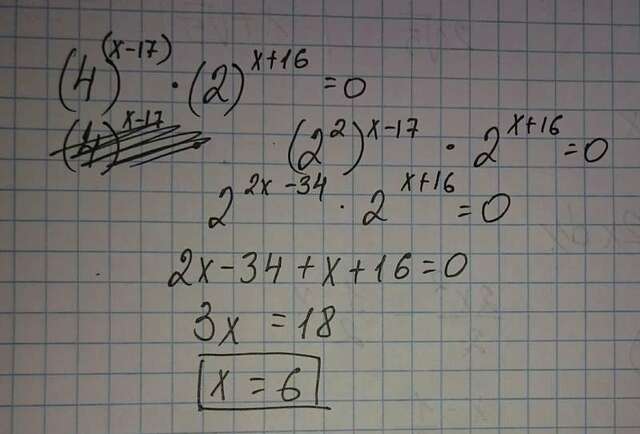 (4)^(x-17) · (2)^x+16 = 0
(2²)^x-17 · 2^x+16 = 0
2^2x-34 · 2^x+16 = 0
2x-34+x+16=0
3x = 18
x = 6